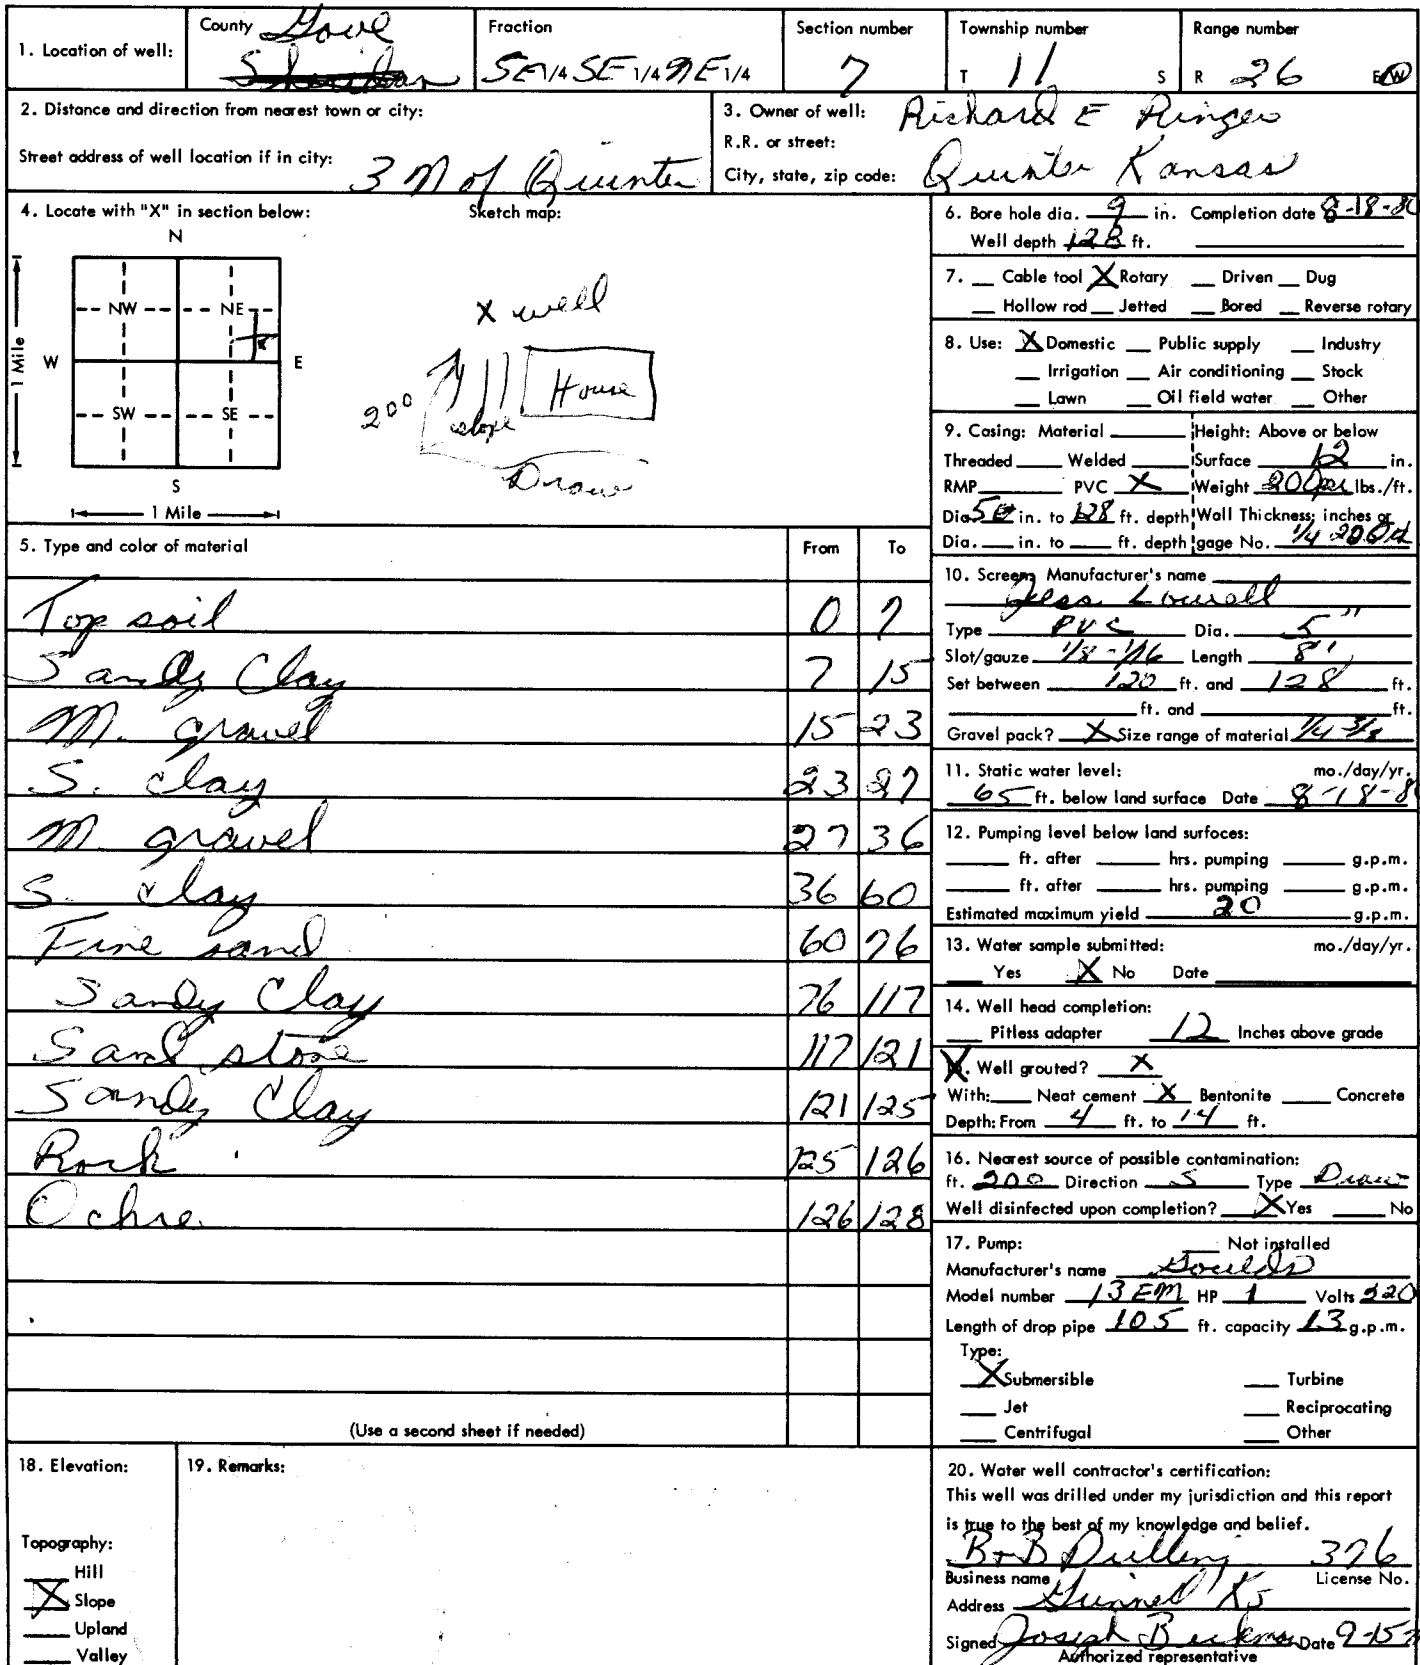 1. Location of well:
County Gove
Sheridan
Fraction
SE 1/4 SE 1/4 NE 1/4
Section number
7
Township number
T 11 S
Range number
R 26 E W
2. Distance and direction from nearest town or city:
Street address of well location if in city: 3 N of Quinter
3. Owner of well: Richard E Ringer
R.R. or street:
City, state, zip code: Quinter Kansas
4. Locate with "X" in section below:
Sketch map:
N
NW NE
W E
SW SE
S
1 Mile
1 Mile
X well
200 slope House
Draw
6. Bore hole dia. 9 in. Completion date 8-18-80
Well depth 128 ft.
7. Cable tool X Rotary Driven Dug
Hollow rod Jetted Bored Reverse rotary
8. Use: X Domestic Public supply Industry
Irrigation Air conditioning Stock
Lawn Oil field water Other
9. Casing: Material Height: Above or below
Threaded Welded Surface 12 in.
RMP PVC X Weight 200 psi lbs./ft.
Dia. in. to 128 ft. depth Wall Thickness: inches or
Dia. in. to ft. depth gage No. 1/4
5. Type and color of material From To
Top soil 0 7
Sandy Clay 7 15
M. gravel 15 23
S. clay 23 27
M. gravel 27 36
S. Clay 36 60
Fine sand 60 76
Sandy Clay 76 117
Sand stone 117 121
Sandy Clay 121 125
Rock 125 126
Ochre 126 128
(Use a second sheet if needed)
10. Screen: Manufacturer's name
Jess Lowell
Type PVC Dia. 5"
Slot/gauze 1/8-1/16 Length 8'
Set between 120 ft. and 128 ft.
ft. and ft.
Gravel pack? X Size range of material 1/4 3/8
11. Static water level: mo./day/yr.
65 ft. below land surface Date 8-18-8
12. Pumping level below land surfaces:
ft. after hrs. pumping g.p.m.
ft. after hrs. pumping g.p.m.
Estimated maximum yield 20 g.p.m.
13. Water sample submitted: mo./day/yr.
Yes X No Date
14. Well head completion:
Pitless adapter 12 Inches above grade
X. Well grouted? X
With: Neat cement X Bentonite Concrete
Depth: From 4 ft. to 14 ft.
16. Nearest source of possible contamination:
ft. 200 Direction S Type Draw
Well disinfected upon completion? X Yes No
17. Pump: Not installed
Manufacturer's name Goulds
Model number 13EM HP 1 Volts 220
Length of drop pipe 105 ft. capacity 13 g.p.m.
Type:
X Submersible Turbine
Jet Reciprocating
Centrifugal Other
18. Elevation:
Topography:
Hill
X Slope
Upland
Valley
19. Remarks:
20. Water well contractor's certification:
This well was drilled under my jurisdiction and this report
is true to the best of my knowledge and belief.
B+B Drilling 376
Business name License No.
Address Grinnel Ks
Signed Joseph Date 9-15
Authorized representative